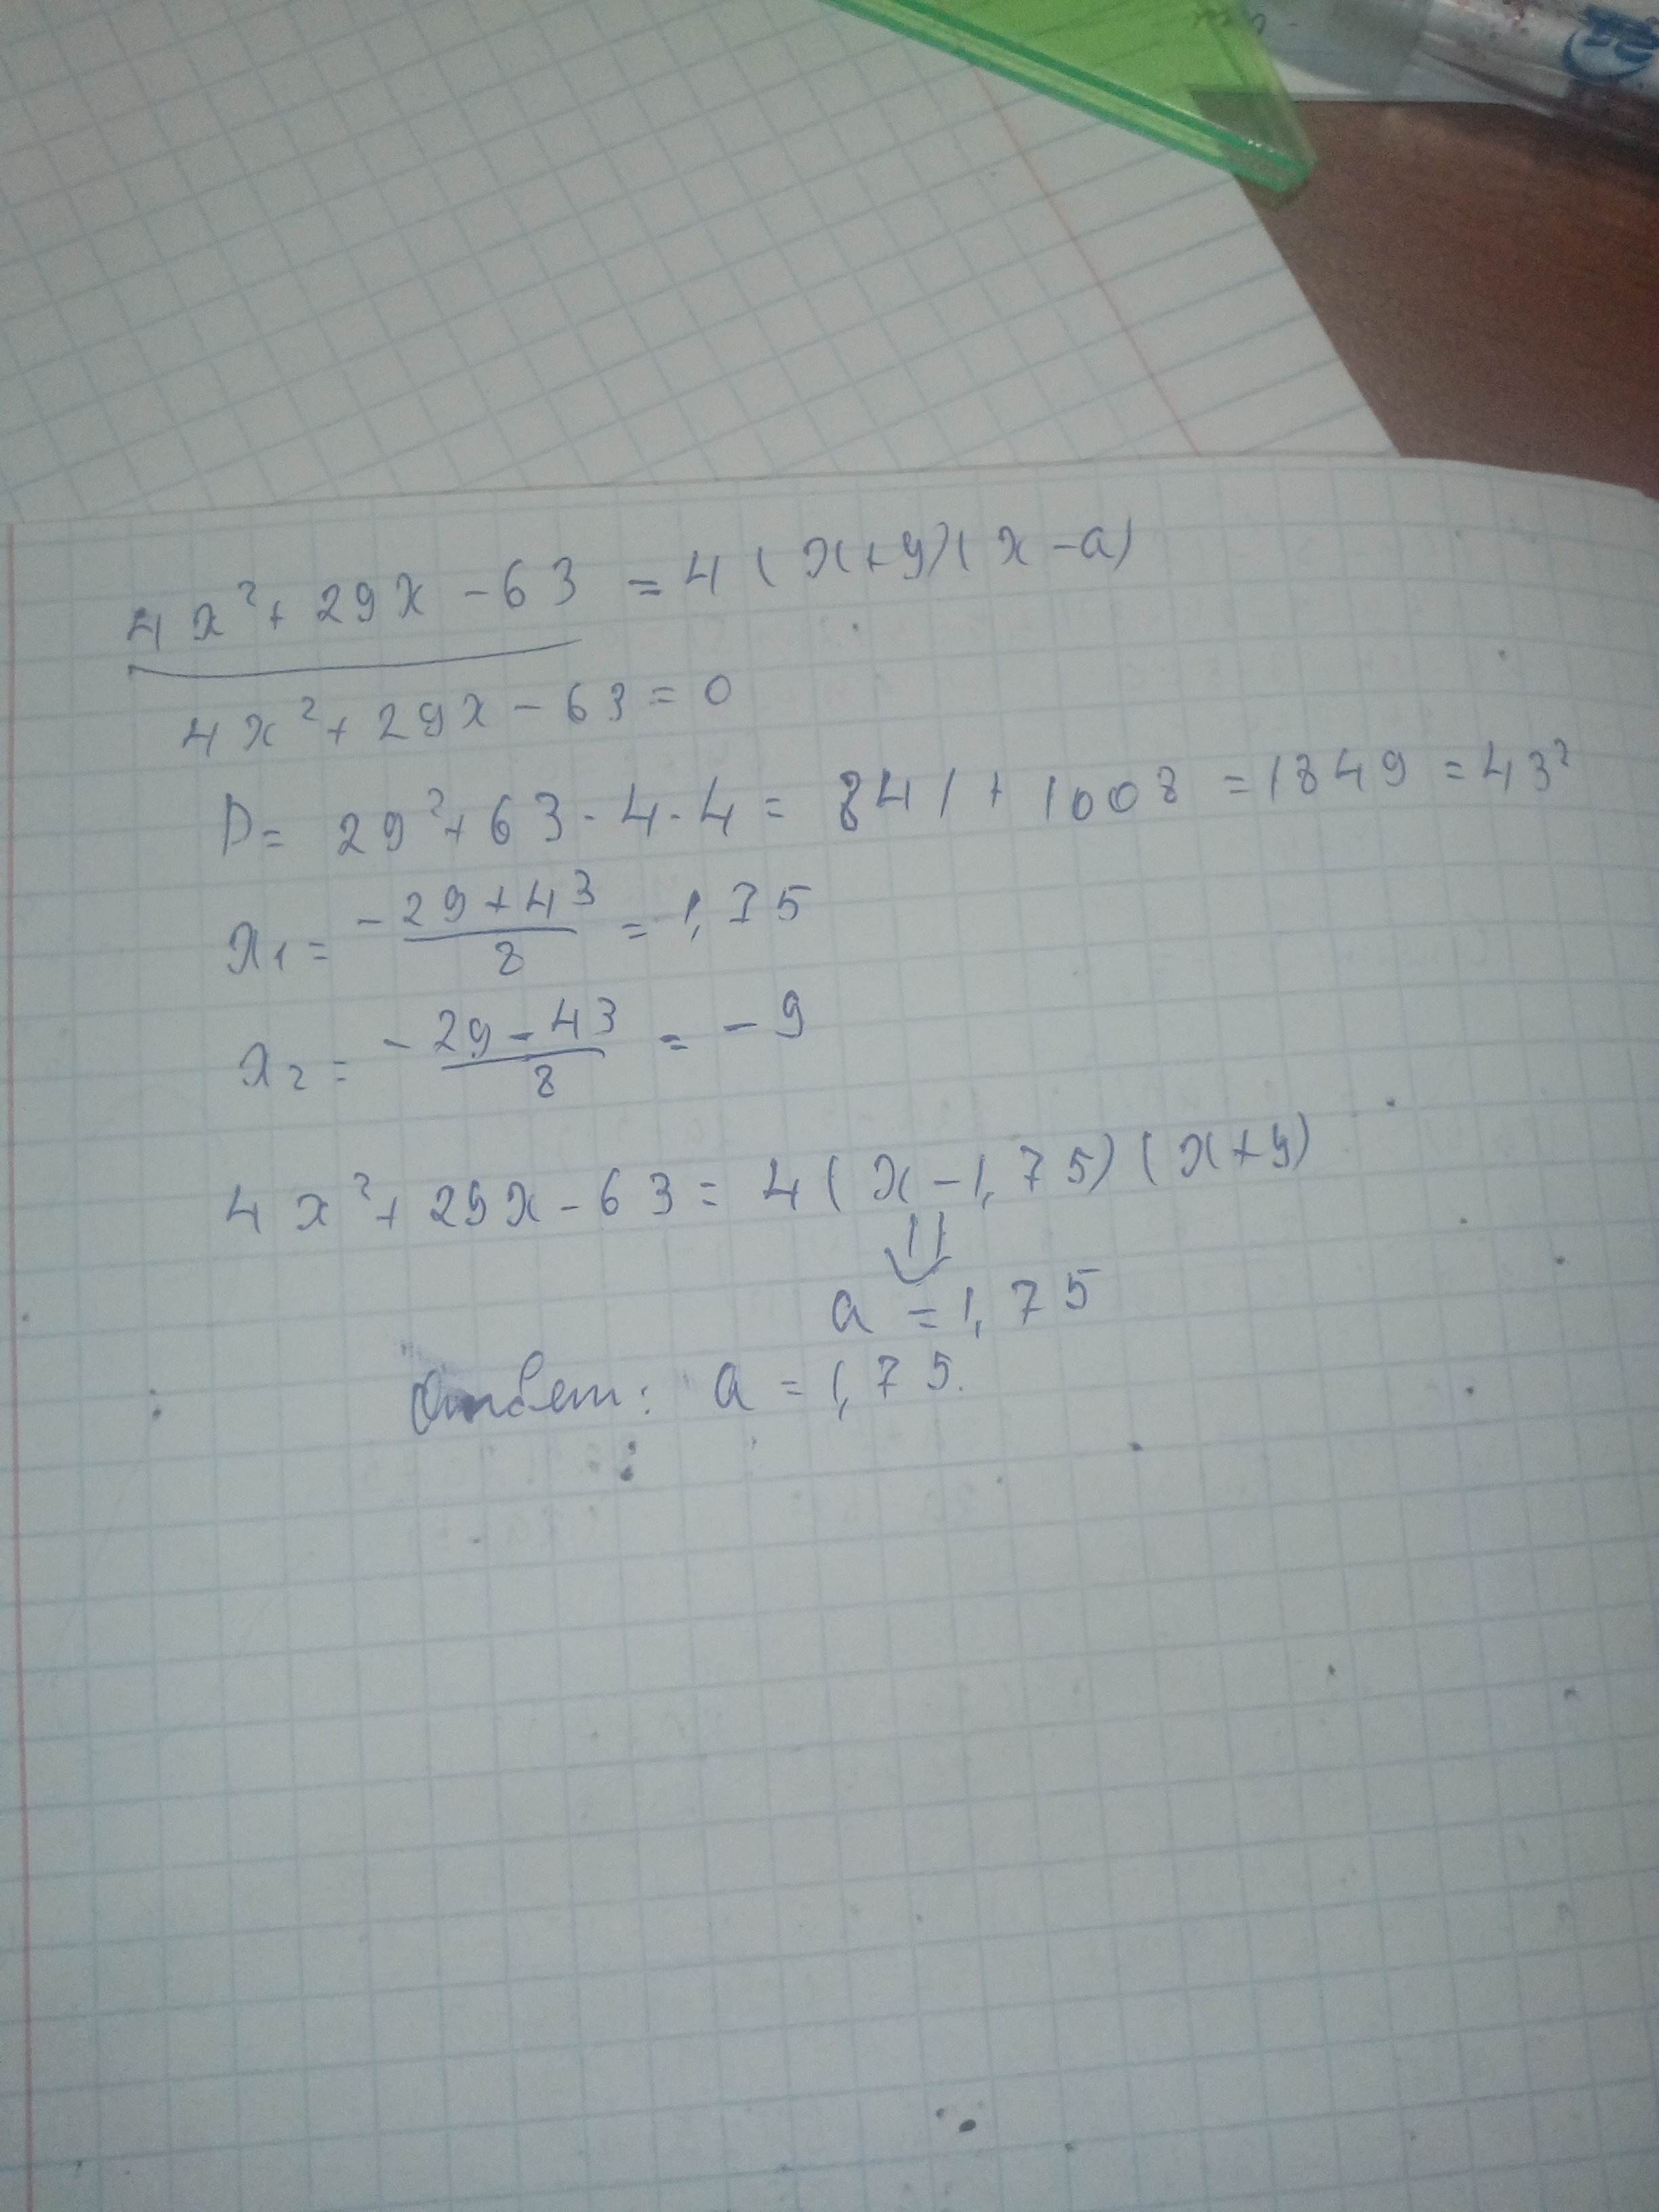 4x² + 29x - 63 = 4(x+9)(x-a)
4x² + 29x - 63 = 0
D = 29² + 63 · 4 · 4 = 841 + 1008 = 1849 = 43²
x₁ = (-29+43)/8 = 1,75
x₂ = (-29-43)/8 = -9
4x² + 29x - 63 = 4(x-1,75)(x+9)
⇓
a = 1,75
Ответ: a = 1,75.